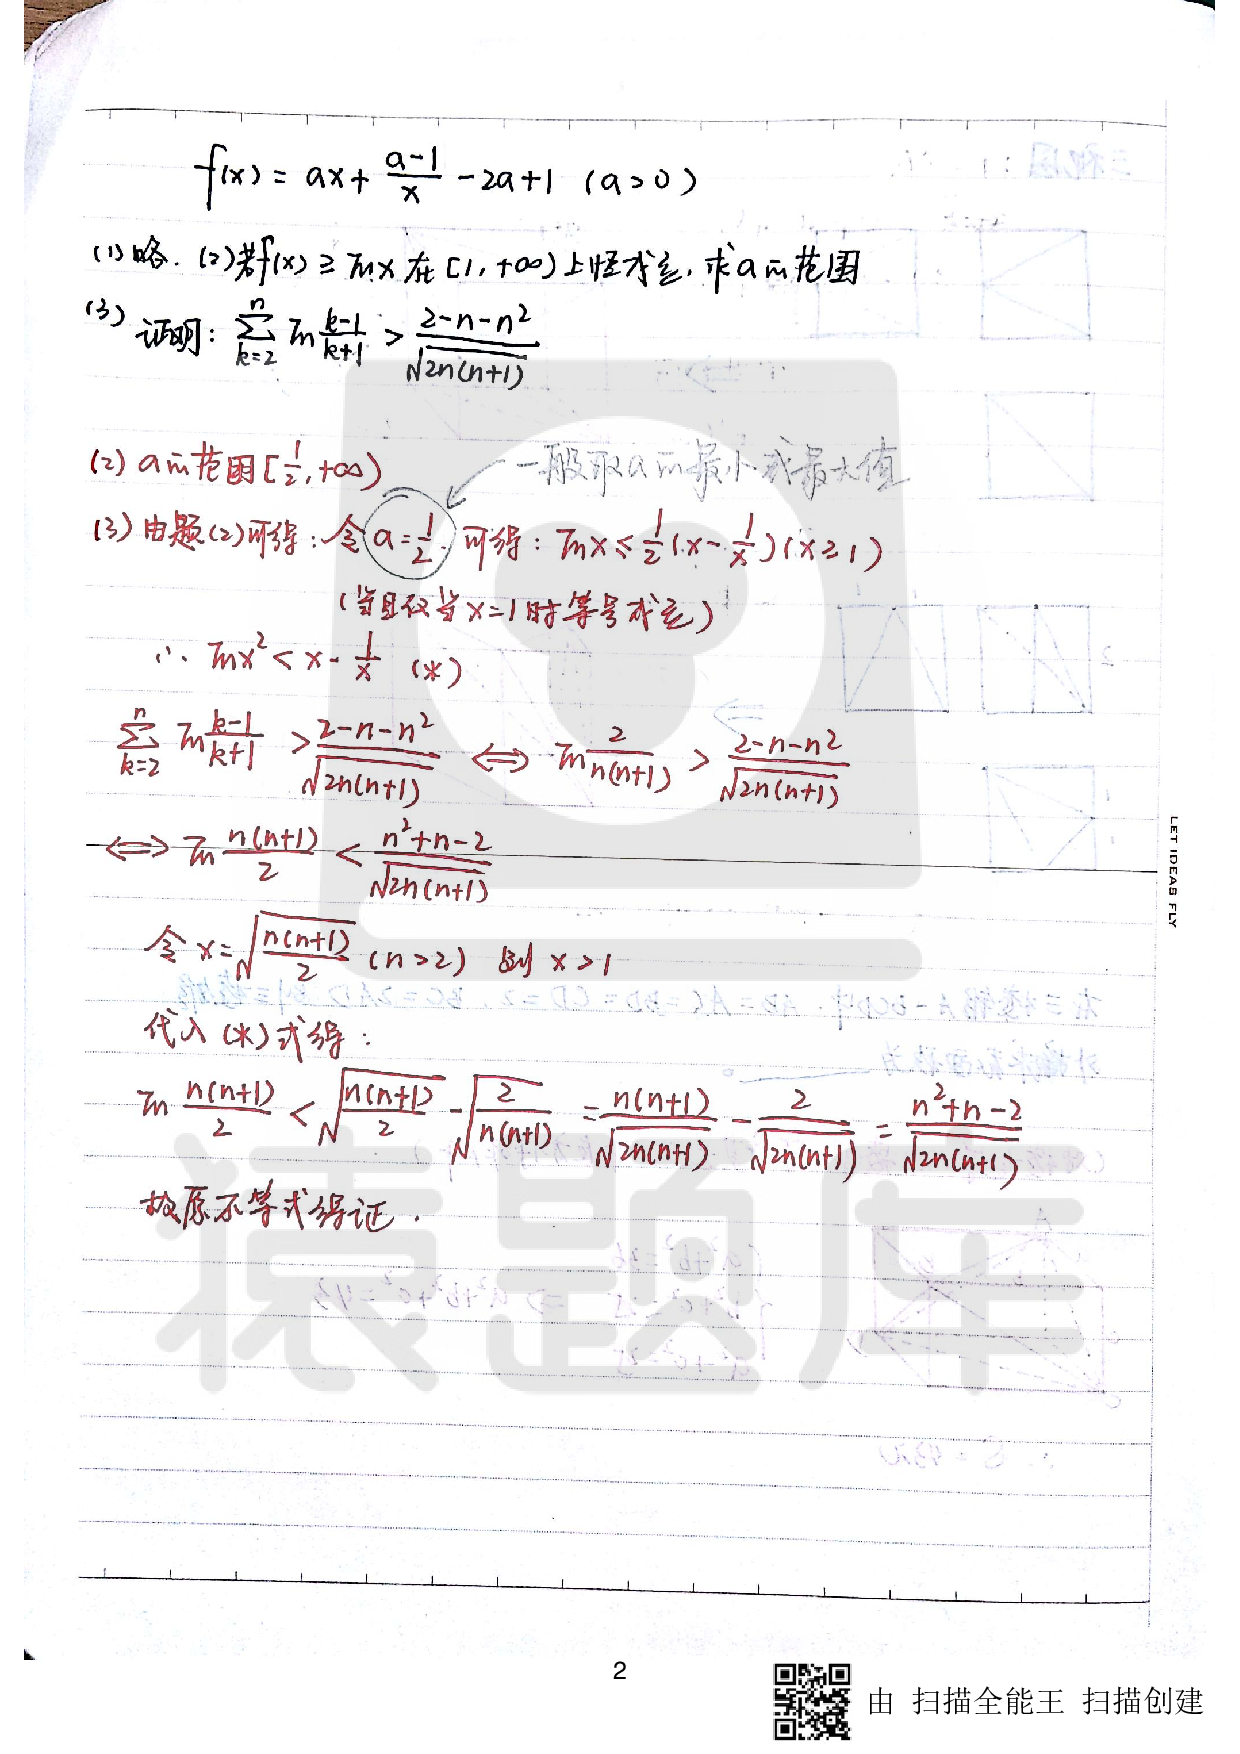 f(x) = ax + (a-1)/x - 2a+1 (a>0)
(1)略. (2)若f(x) ≥ lnx 在[1, +∞)上恒成立, 求a的范围
(3) 证明: ∑_{k=2}^{n} ln (k-1)/(k+1) > (2-n-n²)/√(2n(n+1))
(2) a的范围[1/2, +∞)
一般取a的最小或最大值
(3) 由题(2)可得: 令a=1/2, 可得: lnx ≤ 1/2(x-1/x) (x≥1)
(当且仅当x=1时等号成立)
∴ lnx² < x - 1/x (*)
∑_{k=2}^{n} ln (k-1)/(k+1) > (2-n-n²)/√(2n(n+1)) ⇔ ln 2/(n(n+1)) > (2-n-n²)/√(2n(n+1))
⇔ ln n(n+1)/2 < (n²+n-2)/√(2n(n+1))
令 x=√(n(n+1)/2) (n>2) 则 x>1
代入(*)式得:
ln n(n+1)/2 < √(n(n+1)/2) - √(2/(n(n+1))) = n(n+1)/√(2n(n+1)) - 2/√(2n(n+1)) = (n²+n-2)/√(2n(n+1))
故原不等式得证.
猿题库
LET IDEAS FLY
2
由 扫描全能王 扫描创建